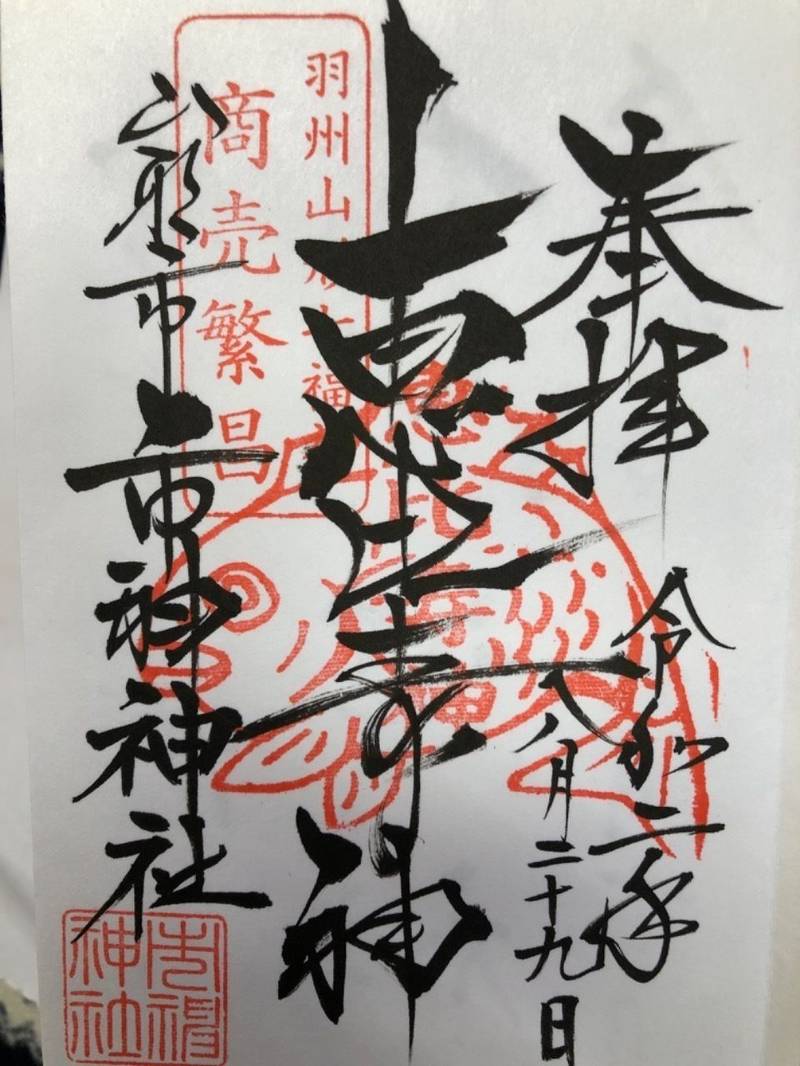 奉拝
令和二年
八月二十九日
恵比寿神
羽州山形七福神
商売繁昌
山形市 市神神社
市神
神社